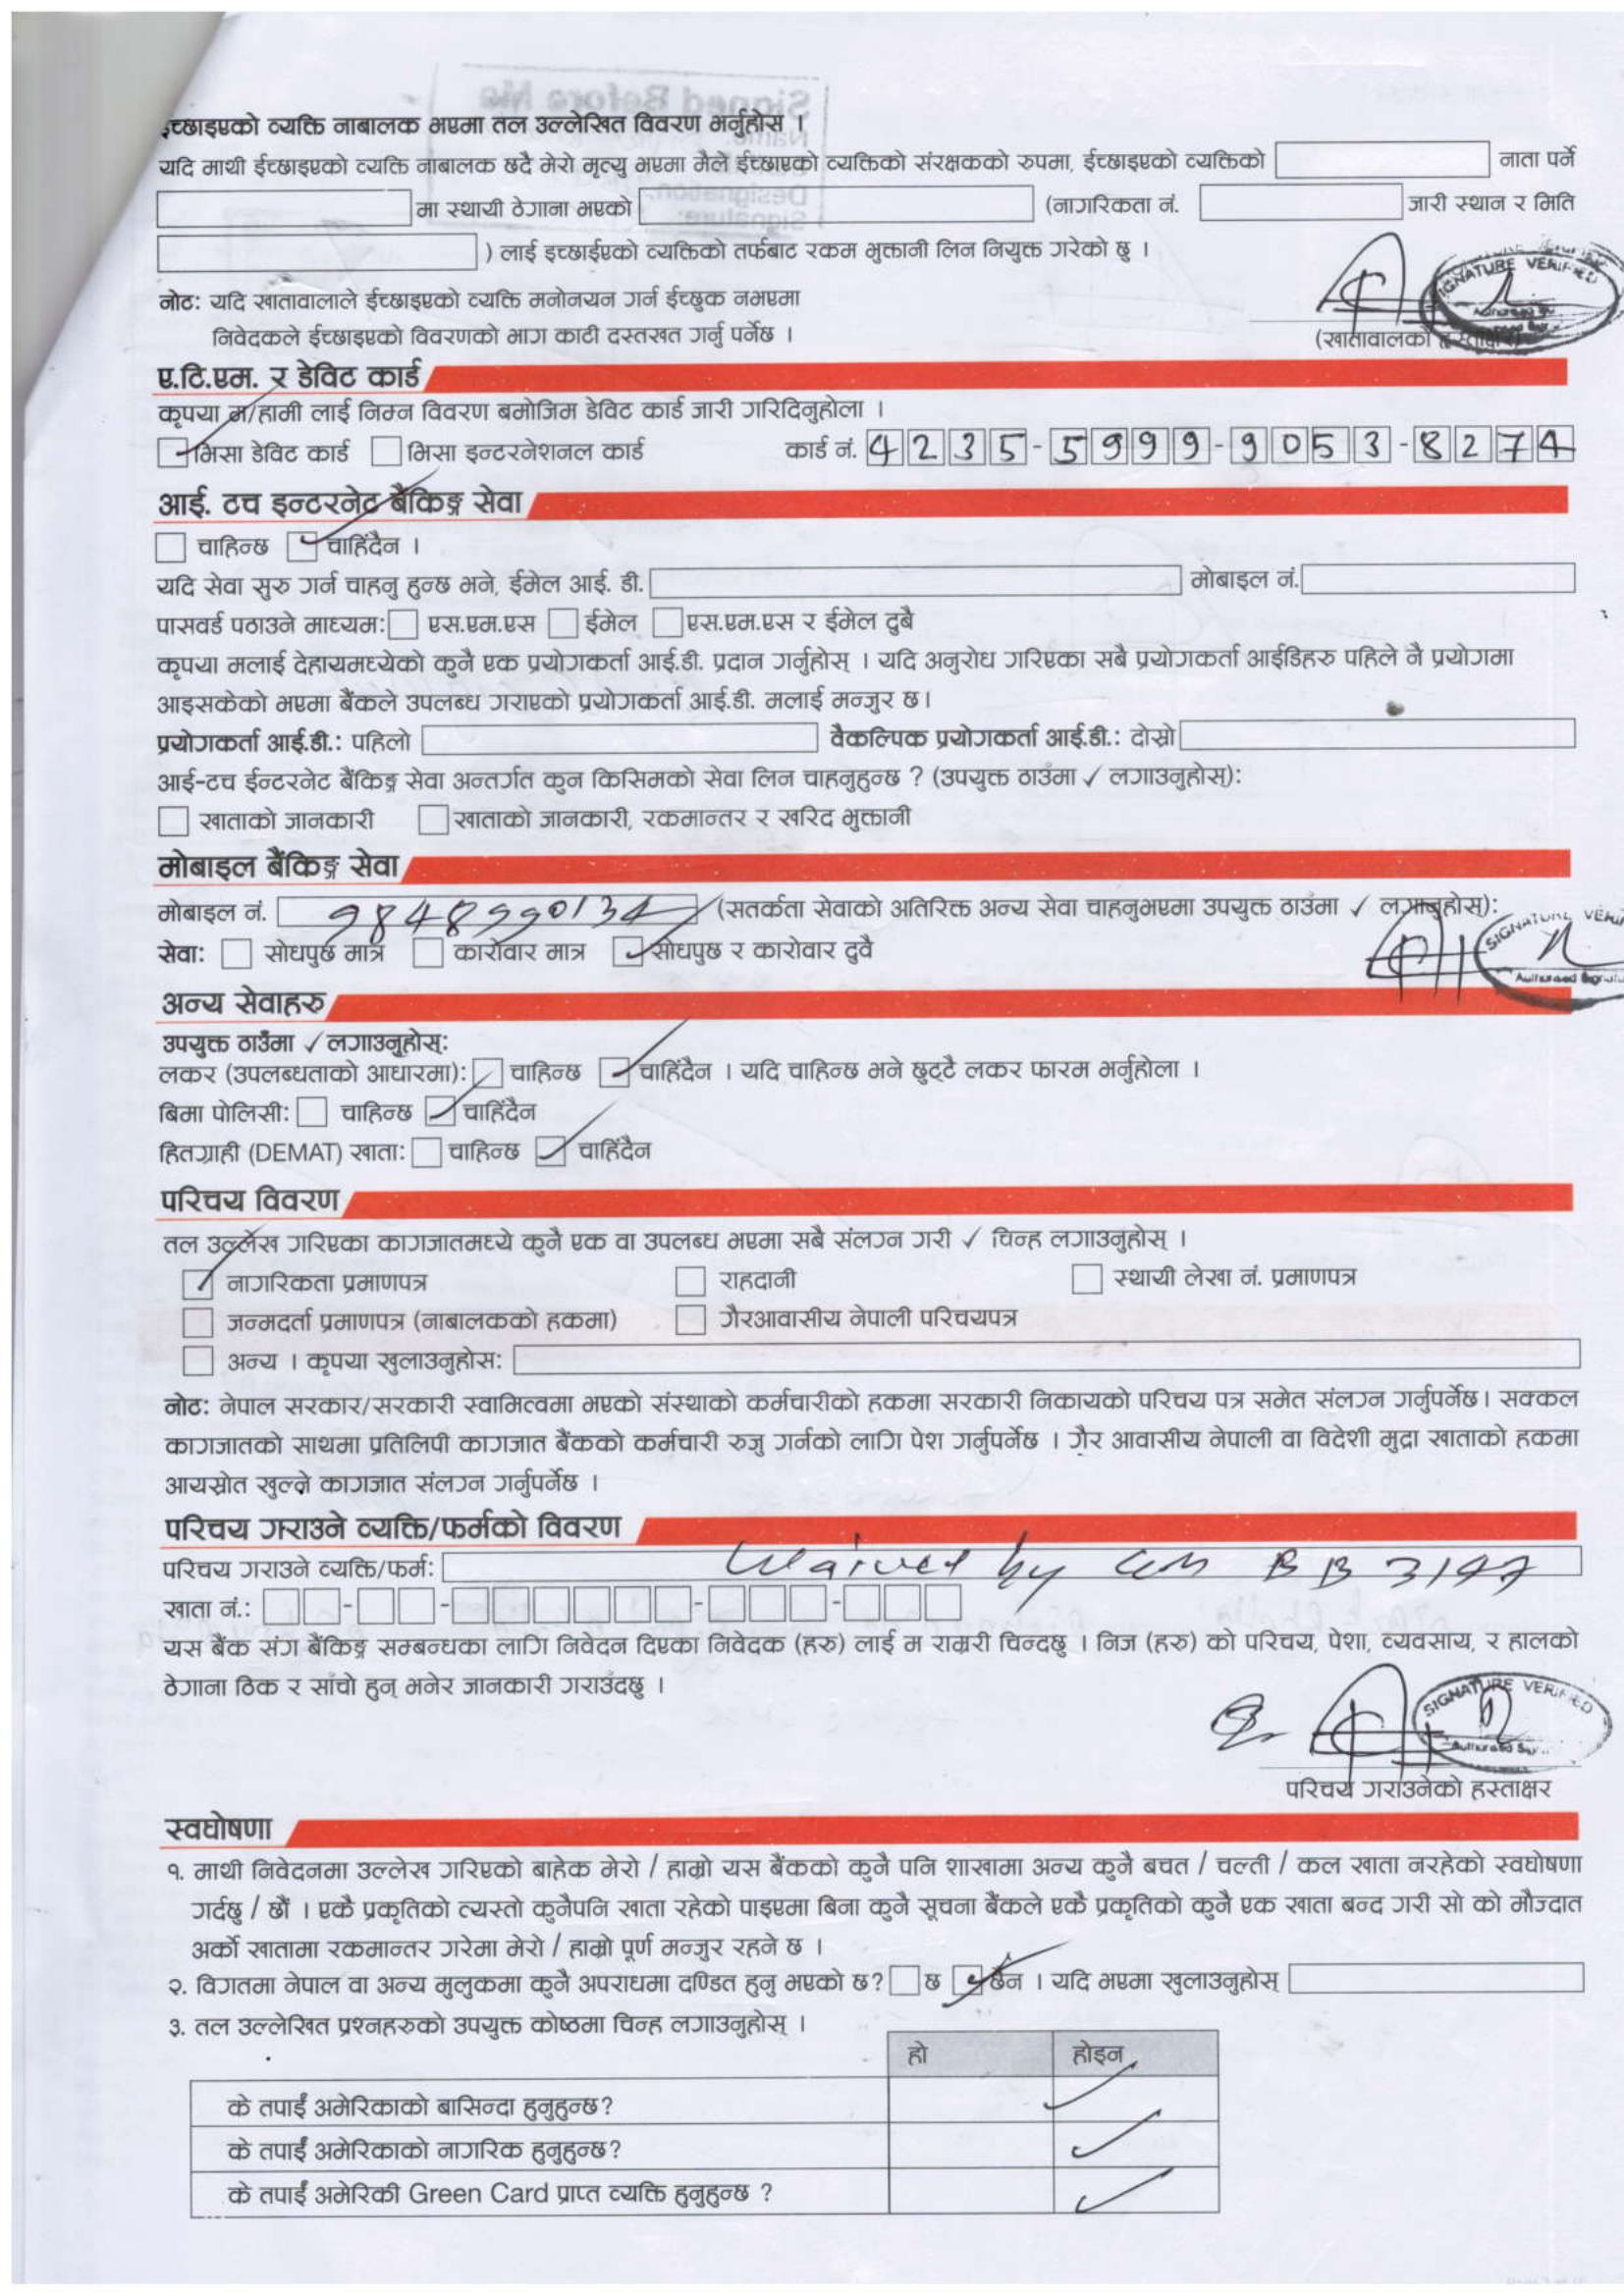 ईच्छाइएको व्यक्ति नाबालक भएमा तल उल्लेखित विवरण भर्नुहोस ।
यदि माथी ईच्छाइएको व्यक्ति नाबालक छदै मेरो मृत्यु भएमा मैले ईच्छाएको व्यक्तिको संरक्षकको रुपमा, ईच्छाइएको व्यक्तिको नाता पर्ने
मा स्थायी ठेगाना भएको (नागरिकता नं. जारी स्थान र मिति
) लाई इच्छाईएको व्यक्तिको तर्फबाट रकम भुक्तानी लिन नियुक्त गरेको छु ।
नोट: यदि खातावालाले ईच्छाइएको व्यक्ति मनोनयन गर्न ईच्छुक नभएमा
निवेदकले ईच्छाइएको विवरणको भाग काटी दस्तखत गर्नु पर्नेछ ।
SIGNATURE VERIFIED
(खातावालको हस्ताक्षर)
ए.टि.एम. र डेविट कार्ड
कृपया म/हामी लाई निम्न विवरण बमोजिम डेविट कार्ड जारी गरिदिनुहोला ।
भिसा डेविट कार्ड भिसा इन्टरनेशनल कार्ड कार्ड नं. 4235-5999-9053-8274
आई. टच इन्टरनेट बैंकिङ्ग सेवा
चाहिन्छ चाहिंदैन ।
यदि सेवा सुरु गर्न चाहनु हुन्छ भने, ईमेल आई. डी. मोबाइल नं.
पासवर्ड पठाउने माध्यम: एस.एम.एस ईमेल एस.एम.एस र ईमेल दुबै
कृपया मलाई देहायमध्येको कुनै एक प्रयोगकर्ता आई.डी. प्रदान गर्नुहोस् । यदि अनुरोध गरिएका सबै प्रयोगकर्ता आईडिहरु पहिले नै प्रयोगमा
आइसकेको भएमा बैंकले उपलब्ध गराएको प्रयोगकर्ता आई.डी. मलाई मन्जुर छ।
प्रयोगकर्ता आई.डी.: पहिलो वैकल्पिक प्रयोगकर्ता आई.डी.: दोस्रो
आई-टच ईन्टरनेट बैंकिङ्ग सेवा अन्तर्गत कुन किसिमको सेवा लिन चाहनुहुन्छ ? (उपयुक्त ठाउँमा ✓ लगाउनुहोस्):
खाताको जानकारी खाताको जानकारी, रकमान्तर र खरिद भुक्तानी
मोबाइल बैंकिङ्ग सेवा
मोबाइल नं. 9848990134 (सतर्कता सेवाको अतिरिक्त अन्य सेवा चाहनुभएमा उपयुक्त ठाउँमा ✓ लगाउनुहोस्):
सेवा: सोधपुछ मात्र कारोवार मात्र सोधपुछ र कारोवार दुवै
अन्य सेवाहरु
उपयुक्त ठाउँमा ✓ लगाउनुहोस्:
लकर (उपलब्धताको आधारमा): चाहिन्छ चाहिंदैन । यदि चाहिन्छ भने छुट्टै लकर फारम भर्नुहोला ।
बिमा पोलिसी: चाहिन्छ चाहिंदैन
हितग्राही (DEMAT) खाता: चाहिन्छ चाहिंदैन
परिचय विवरण
तल उल्लेख गरिएका कागजातमध्ये कुनै एक वा उपलब्ध भएमा सबै संलग्न गरी ✓ चिन्ह लगाउनुहोस् ।
नागरिकता प्रमाणपत्र राहदानी स्थायी लेखा नं. प्रमाणपत्र
जन्मदर्ता प्रमाणपत्र (नाबालकको हकमा) गैरआवासीय नेपाली परिचयपत्र
अन्य । कृपया खुलाउनुहोस:
नोट: नेपाल सरकार/सरकारी स्वामित्वमा भएको संस्थाको कर्मचारीको हकमा सरकारी निकायको परिचय पत्र समेत संलग्न गर्नुपर्नेछ। सक्कल
कागजातको साथमा प्रतिलिपी कागजात बैंकको कर्मचारी रुजु गर्नको लागि पेश गर्नुपर्नेछ । गैर आवासीय नेपाली वा विदेशी मुद्रा खाताको हकमा
आयस्रोत खुल्ने कागजात संलग्न गर्नुपर्नेछ ।
परिचय गराउने व्यक्ति/फर्मको विवरण
परिचय गराउने व्यक्ति/फर्म: Waived by BB 3197
खाता नं.:
यस बैंक संग बैंकिङ्ग सम्बन्धका लागि निवेदन दिएका निवेदक (हरु) लाई म राम्ररी चिन्दछु । निज (हरु) को परिचय, पेशा, व्यवसाय, र हालको
ठेगाना ठिक र साँचो हुन् भनेर जानकारी गराउँदछु ।
SIGNATURE VERIFIED
परिचय गराउनेको हस्ताक्षर
स्वघोषणा
१. माथी निवेदनमा उल्लेख गरिएको बाहेक मेरो / हाम्रो यस बैंकको कुनै पनि शाखामा अन्य कुनै बचत / चल्ती / कल खाता नरहेको स्वघोषणा
गर्दछु / छौं । एकै प्रकृतिको त्यस्तो कुनैपनि खाता रहेको पाइएमा बिना कुनै सूचना बैंकले एकै प्रकृतिको कुनै एक खाता बन्द गरी सो को मौज्दात
अर्को खातामा रकमान्तर गरेमा मेरो / हाम्रो पूर्ण मन्जुर रहने छ ।
२. विगतमा नेपाल वा अन्य मुलुकमा कुनै अपराधमा दण्डित हुनु भएको छ? छ छैन । यदि भएमा खुलाउनुहोस्
३. तल उल्लेखित प्रश्नहरुको उपयुक्त कोष्ठमा चिन्ह लगाउनुहोस् ।
हो होइन
के तपाईं अमेरिकाको बासिन्दा हुनुहुन्छ?
के तपाईं अमेरिकाको नागरिक हुनुहुन्छ?
के तपाईं अमेरिकी Green Card प्राप्त व्यक्ति हुनुहुन्छ ?